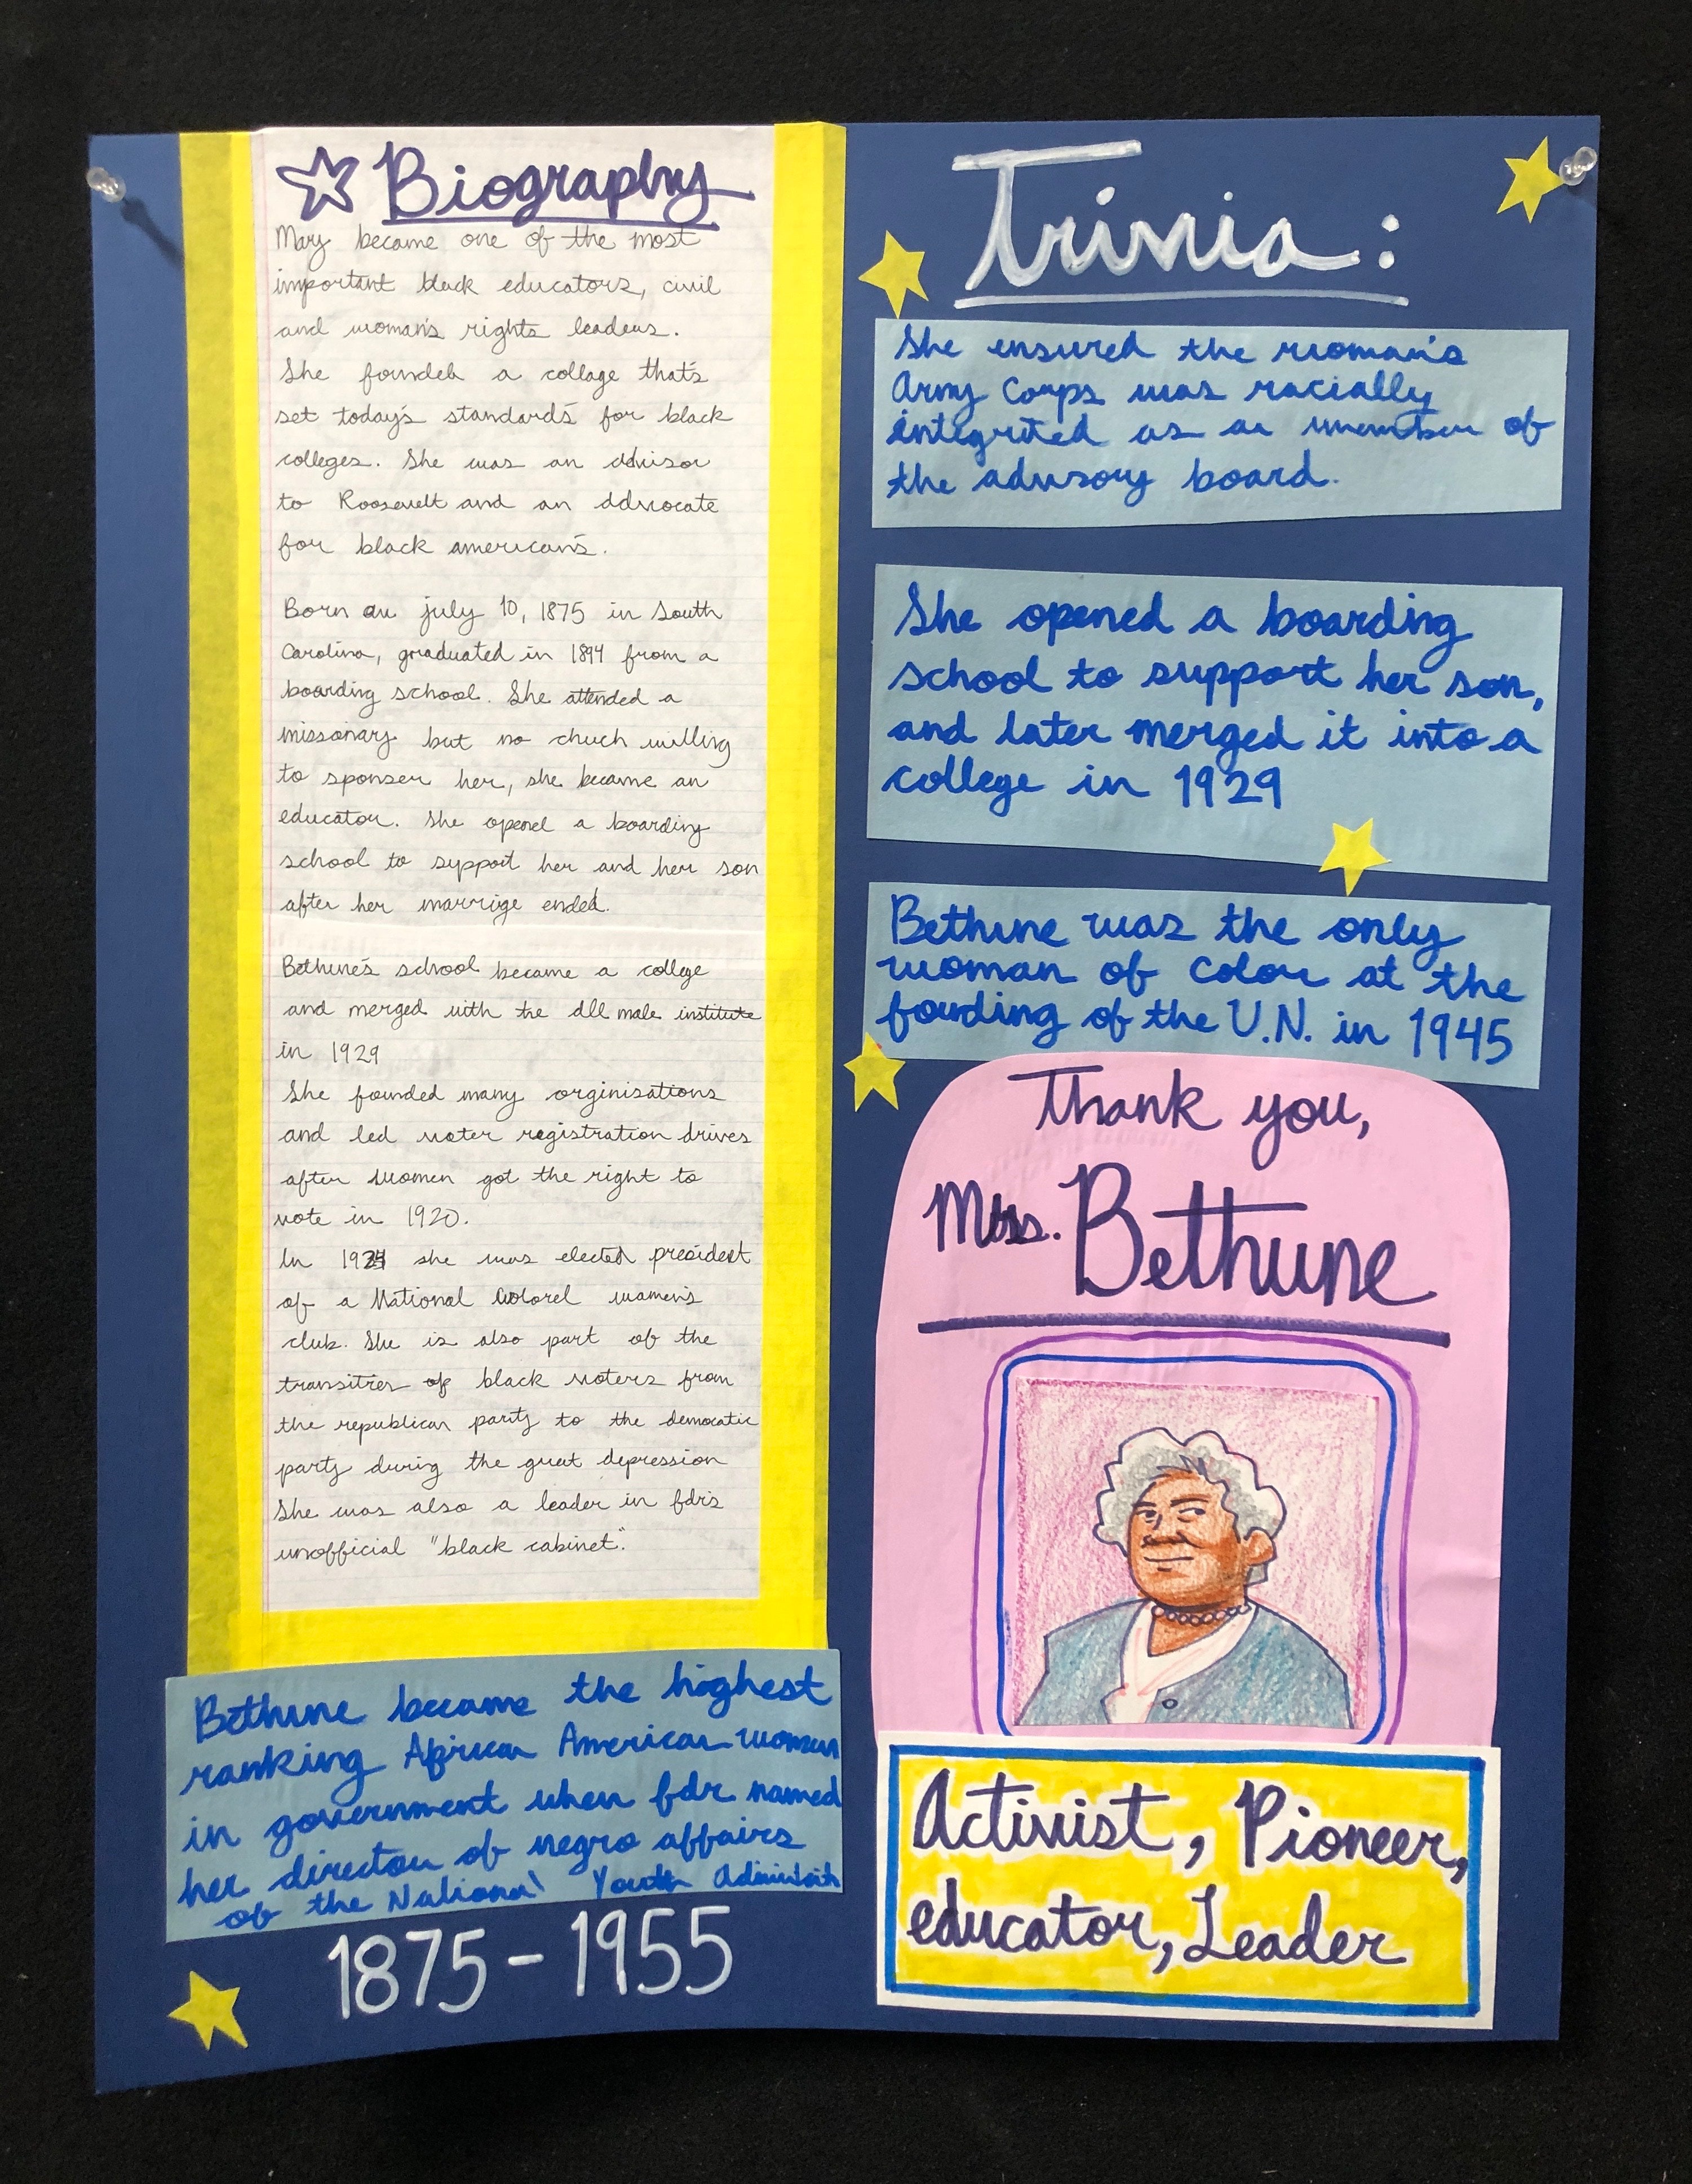 Biography
Mary became one of the most
important black educators, civil
and woman's rights leaders.
She founded a collage that's
set today's standards for black
colleges. She was an advisor
to Roosevelt and an advocate
for black american's.
Born on july 10, 1875 in South
Carolina, graduated in 1894 from a
boarding school. She attended a
missonary but no chuch willing
to sponser her, she became an
educator. She opened a boarding
school to support her and her son
after her marrige ended.
Bethune's school became a college
and merged with the all male institute
in 1929
She founded many orginisations
and led voter registration drives
after women got the right to
vote in 1920.
In 1924 she was elected president
of a National Colored women's
club. She is also part of the
transition of black voters from
the republican party to the democratic
party during the great depression
She was also a leader in fdr's
unofficial "black cabinet".
Bethune became the highest
ranking African American woman
in government when fdr named
her director of negro affairs
of the National Youth
1875-1955
Trivia:
She ensured the woman's
Army Corps was racially
integrated as a member of
the advisory board.
She opened a boarding
school to support her son,
and later merged it into a
college in 1929
Bethune was the only
woman of color at the
founding of the U.N. in 1945
Thank you,
Bethune
Activist, Pioneer,
educator, Leader